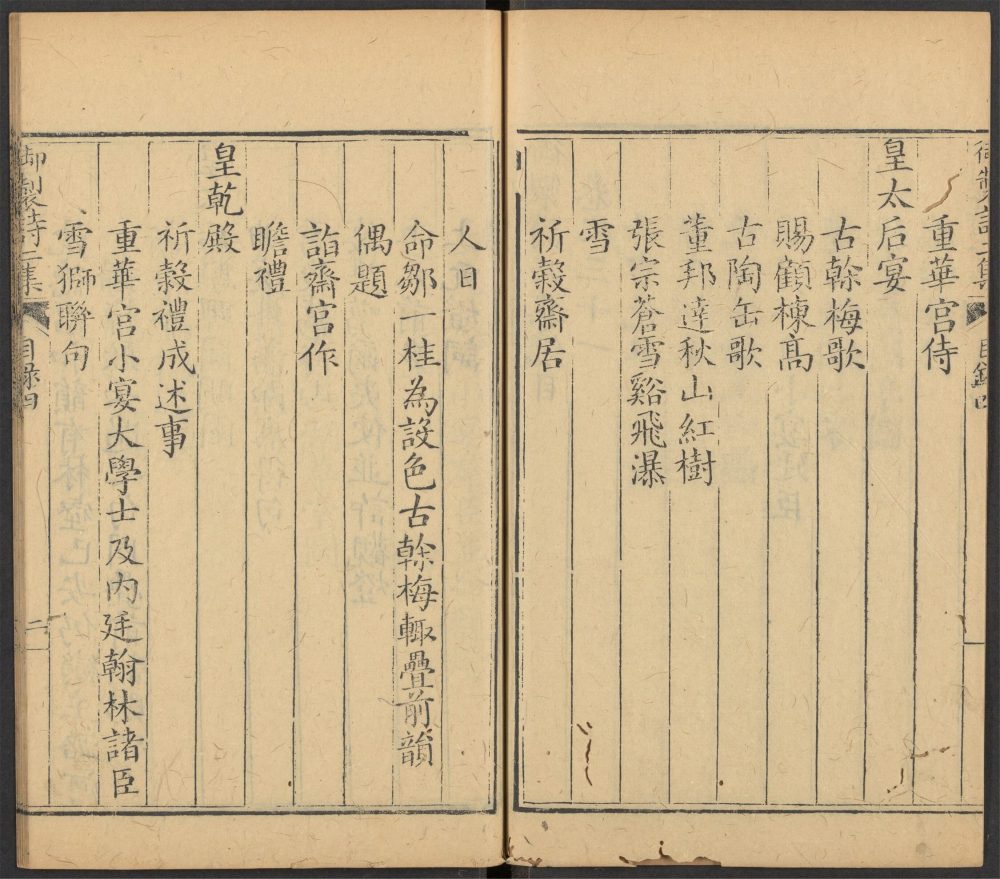 御製詩二集 目錄四
重華宮侍
皇太后宴
古榦梅歌
賜顧棟高
古陶缶歌
董邦達秋山紅樹
張宗蒼雪谿飛瀑
雪
祈穀齋居
人日
命鄒一桂為設色古榦梅輒疊前韻
偶題
詣齋宮作
瞻禮
皇乾
殿
祈穀禮成述事
重華宮小宴大學士及內廷翰林諸臣
雪獅聯句
御製詩二集 目錄四 二